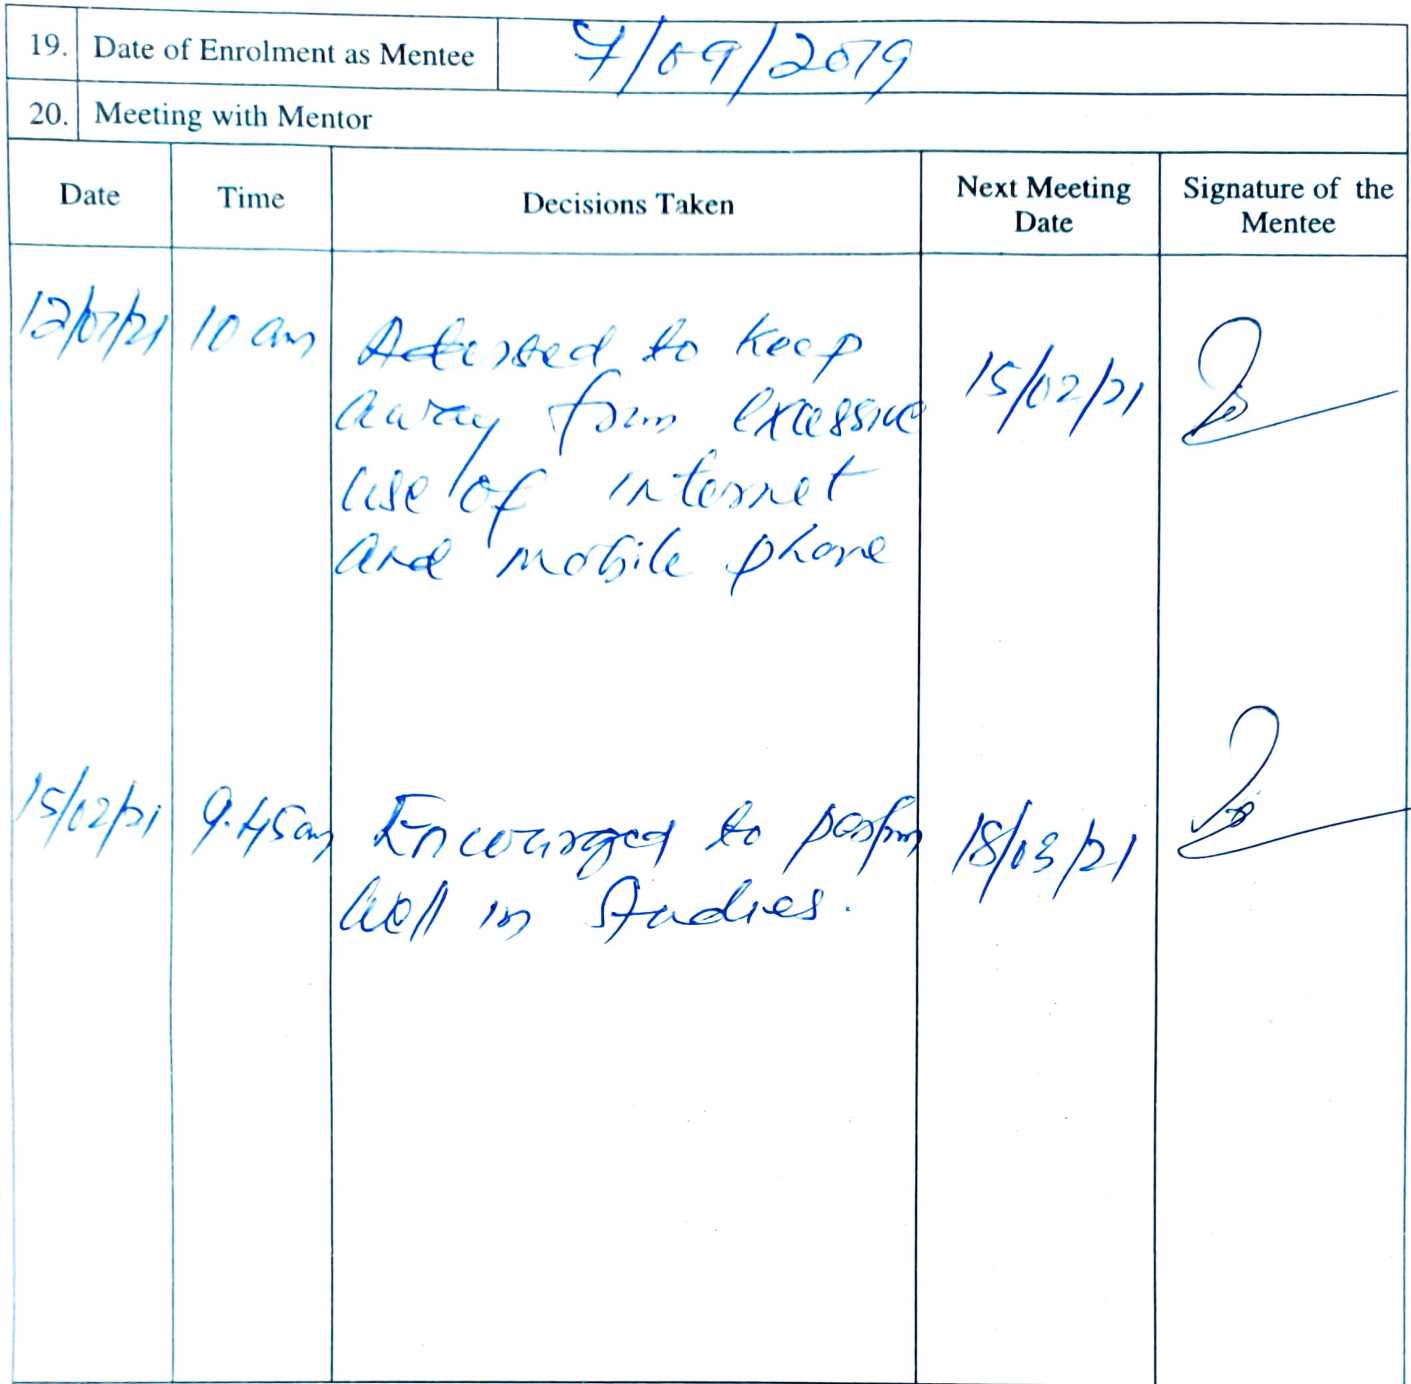 19. Date of Enrolment as Mentee 7/09/2019
20. Meeting with Mentor
Date Time Decisions Taken Next Meeting Date Signature of the Mentee
12/01/21 10 am Advised to keep 15/02/21
away from excessive
use of internet
and mobile phone
15/02/21 9.45am Encouraged to perform 18/03/21
well in studies.